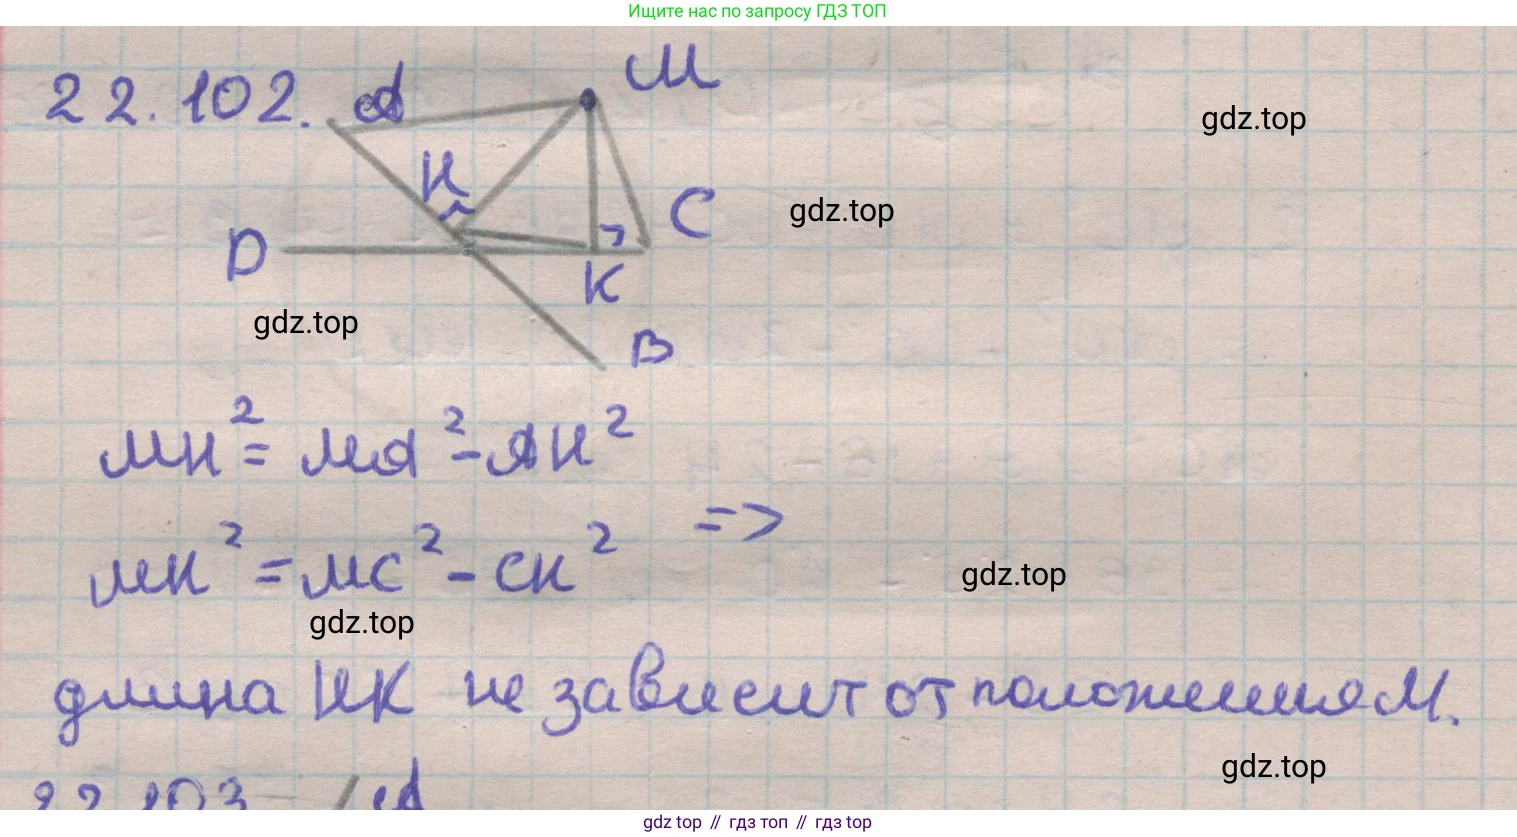 Ищите нас по запросу ГДЗ ТОП
22.102. A
M
gdz.top
H
C
gdz.top
D
K
gdz.top
B
MH² = MA² - AH²
=>
MK² = MC² - CK²
gdz.top
gdz.top
длина HK не зависит от положения M.
gdz.top
22.103 A
gdz top // гдз топ // гдз top